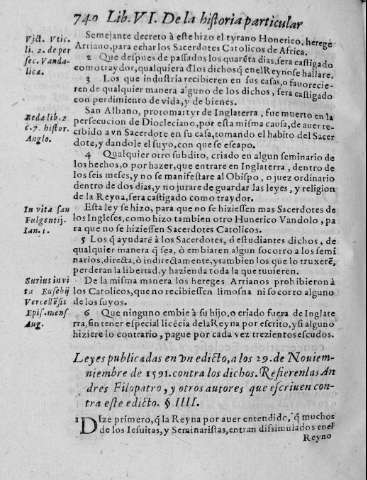 740 Lib. VI. De la historia particular
Vict. Vtic.
li. 2. de per
sec. Vanda-
lica.
Semejante decreto à este hizo el tyrano Honerico, herege
Arriano, para echar los Sacerdotes Catolicos de Africa.
2 Que despues de passados los quarẽta dias, sera castigado
como traydor, qualquiera d̃los dichos q̃ en el Reyno se hallare.
3 Los que industria recibieren en sus casas, o fauorecie-
ren de qualquier manera alguno de los dichos, sera castigado
con perdimiento de vida, y de bienes.
Beda lib. 2
c. 7. histor.
Anglo.
San Albano, protomartyr de Inglaterra, fue muerto en la
persecucion de Diocleciano, por esta misma causa, de auer re-
cebido a vn Sacerdote en su casa, tomando el habito del Sacer
dote, y dandole el suyo, con que se escapo.
4 Qualquier otro subdito, criado en algun seminario de
los hechos, o por hazer, que entrare en Inglaterra, dentro de
los seis meses, y no se manifestare al Obispo, o juez ordinario
dentro de dos dias, y no jurare de guardar las leyes, y religion
de la Reyna, sera castigado como traydor.
In vita san
Fulgentij.
Ian. 1.
Esta ley se hizo, para que no se hiziessen mas Sacerdotes de
los Ingleses, como hizo tambien otro Hunerico Vandolo, pa
ra que no se hiziessen Sacerdotes Catolicos.
5 Los q̃ ayudarẽ à los Sacerdotes, ò estudiantes dichos, de
qualquier manera q̃ sea, ò embiaren algun socorro a los semi
narios, directa, ò indirectamente, y tambien los que lo truxerẽ,
perderan la libertad, y hazienda toda la que tuuieren.
Surius in vi
ta Eusebij
Vercellẽsis
Epis. mens.
Aug.
De la misma manera los hereges Arrianos prohibieron à
los Catolicos, que no recibiessen limosna ni socorro alguno
de los suyos.
6 Que ninguno embie à su hijo, o criado fuera de Inglate
rra, sin tener especial licẽcia de la Reyna por escrito, y si alguno
hiziere lo contrario, pague por cada vez trezientos escudos.
Leyes publicadas en vn edicto, a los 29. de Nouiem-
niembre de 1591. contra los dichos. Refierenlas An
dres Filopatro, y otros autores que escriuen con
tra este edicto. § IIII.
1 DIze primero, q̃ la Reyna por auer entendido, q̃ muchos
de los Iesuitas, y Seminaristas, entran dissimulados en el
Reyno